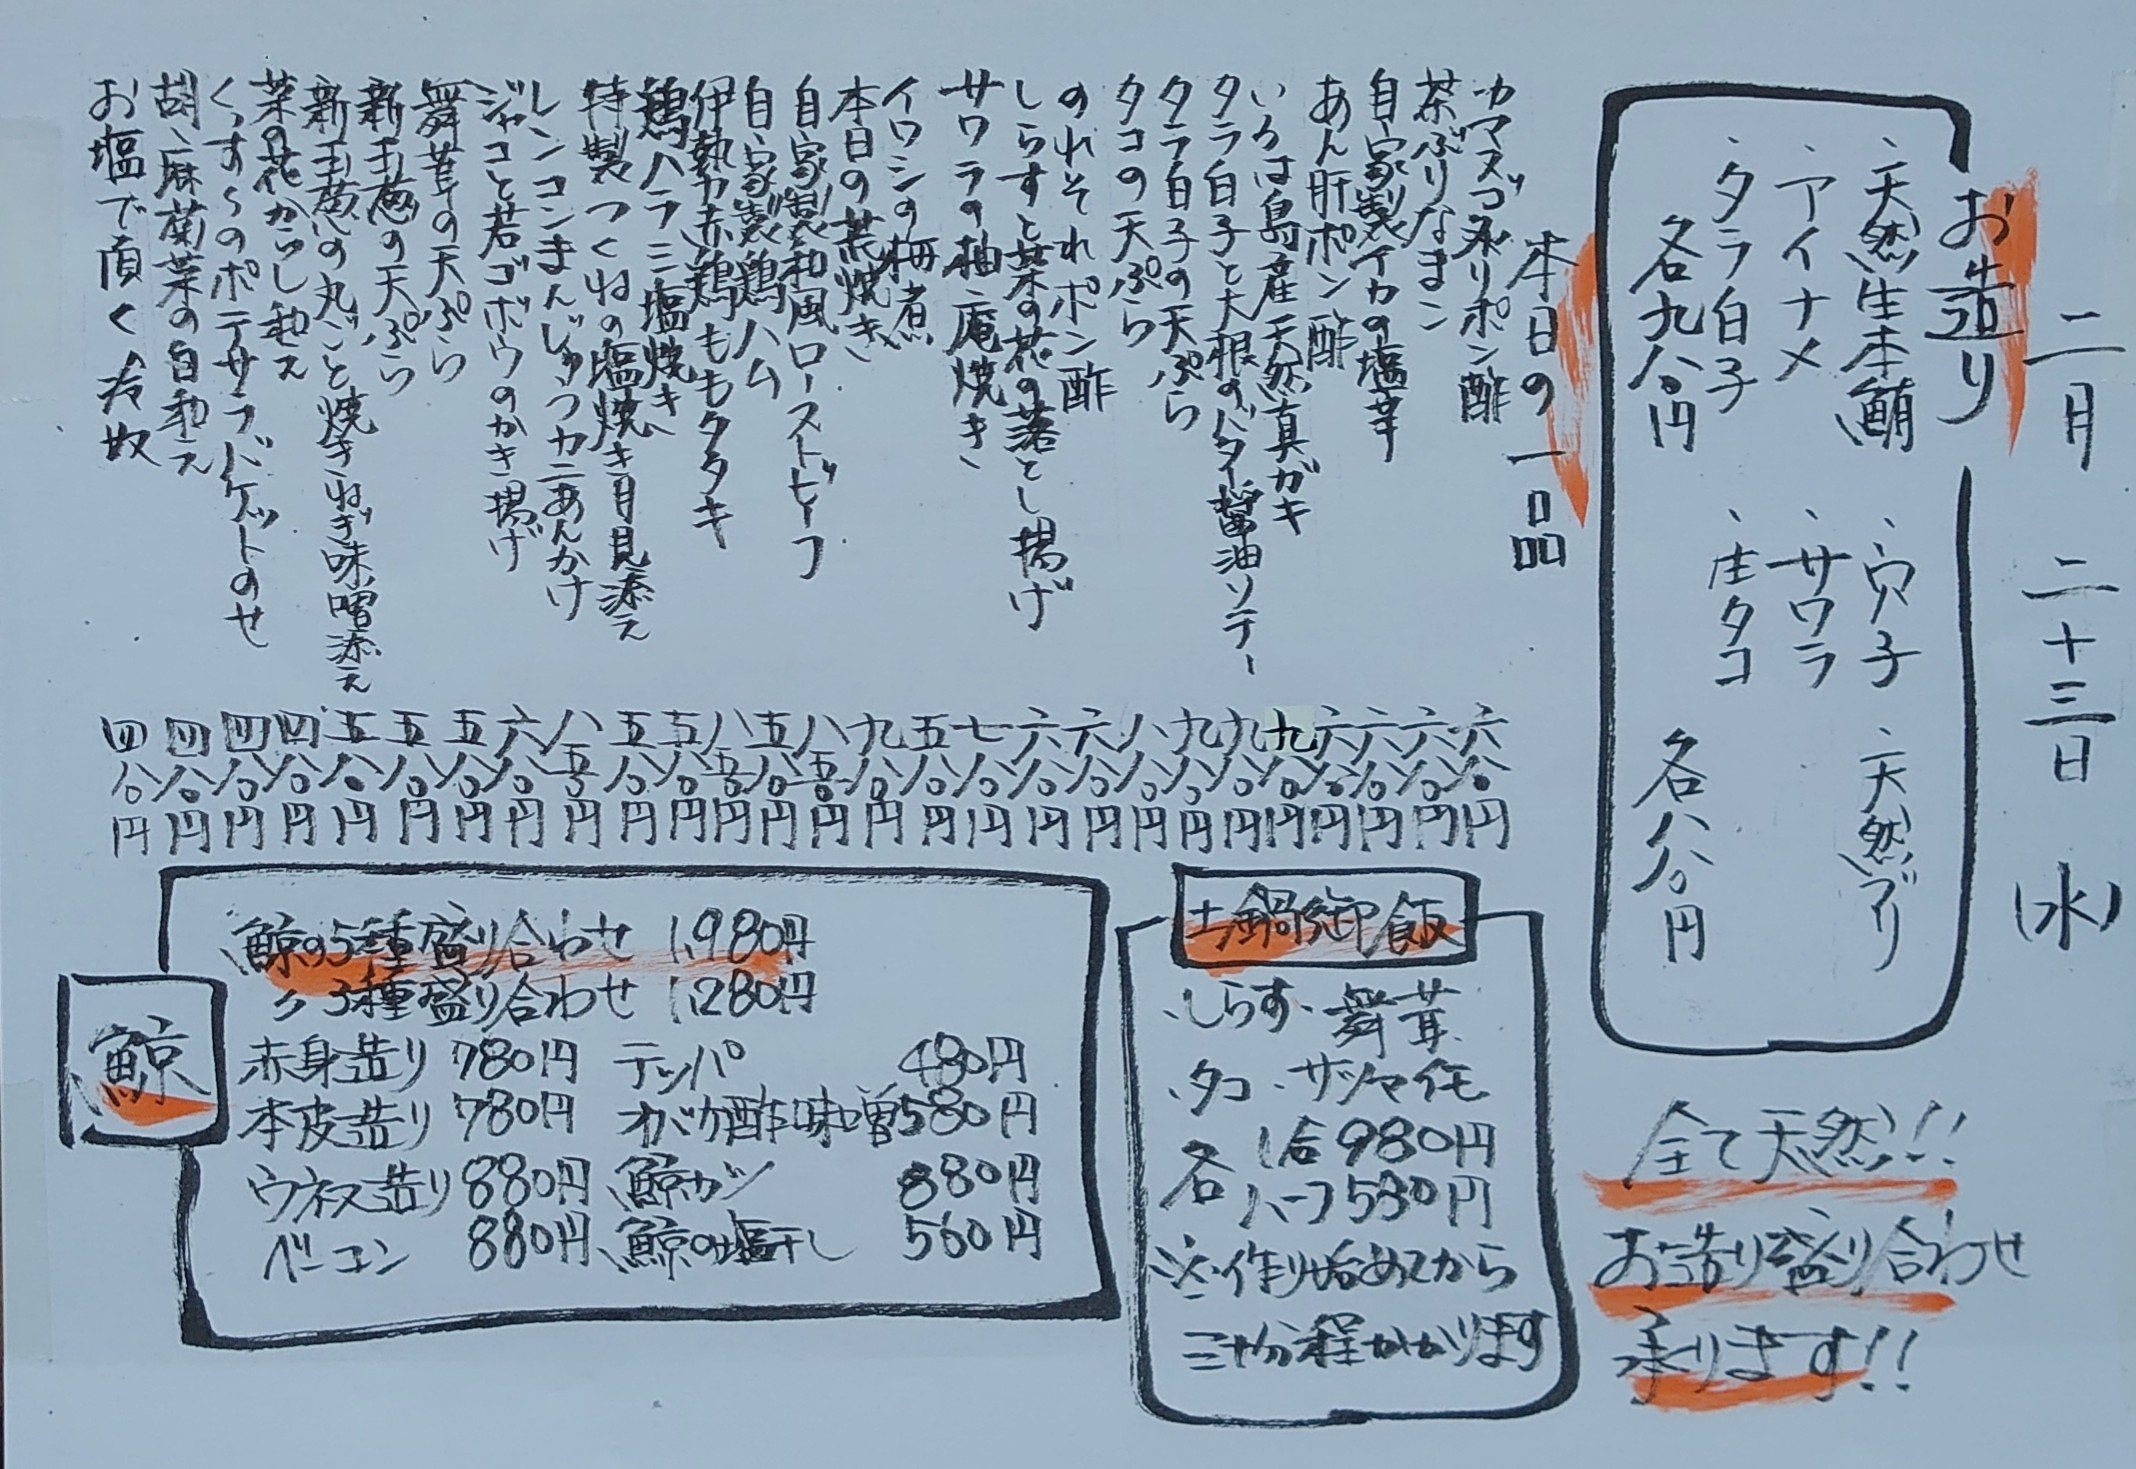 二月二十三日(水)
お造り
・天然生本鮪 ・穴子 ・天然ブリ
・アイナメ ・サワラ
・タラ白子 ・庄タコ
各九八〇円 各八八〇円
本日の一品
カマスゴ炙りポン酢 六八〇円
茶ぶりなまこ 六八〇円
自家製イカの塩辛 六八〇円
あん肝ポン酢 六八〇円
いろは島産天然真ガキ 九八〇円
タラ白子と大根のバター醤油ソテー 九八〇円
タラ白子の天ぷら 九八〇円
タコの天ぷら 八八〇円
のれそれポン酢 六八〇円
しらすと菜の花の落とし揚げ 六八〇円
サワラの柚庵焼き 七八〇円
イワシの梅煮 五八〇円
本日の荒焼き 九八〇円
自家製和風ローストビーフ 八五〇円
自家製鶏ハム 五八〇円
伊勢赤鶏ももタタキ 八五〇円
鶏ハラミ塩焼き 五八〇円
特製つくねの塩焼き月見添え 五八〇円
レンコンまんじゅうカニあんかけ 八五〇円
ジャコと若ゴボウのかき揚げ 六八〇円
舞茸の天ぷら 五八〇円
新玉葱の天ぷら 五八〇円
新玉葱の丸ごと焼きねぎ味噌添え 五八〇円
菜の花からし和え 四八〇円
ポテサラバゲットのせ 四八〇円
胡麻菊菜の白和え 四八〇円
お塩で頂く冷奴 四八〇円
全て天然!!
お造り盛り合わせ
承ります!!
土鍋御飯
・しらす・舞茸
・タコ・サツマイモ
各 1合980円
ハーフ530円
※作り始めてから
三十分程かかります
鯨
鯨の5種盛り合わせ 1,980円
〃 3種盛り合わせ 1,280円
赤身造り 780円 テッパ 480円
本皮造り 780円 オバカ酢味噌 580円
ウネス造り 880円 鯨カツ 880円
ベーコン 880円 鯨の塩干し 560円